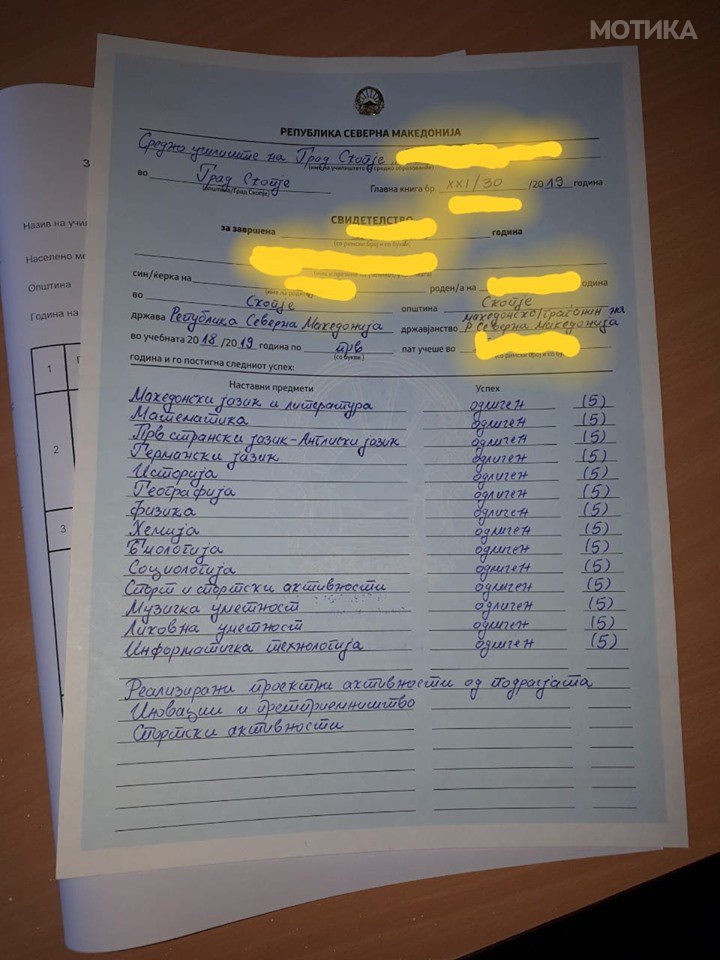 МОТИКА
РЕПУБЛИКА СЕВЕРНА МАКЕДОНИЈА
Средно училиште на Град Скопје
(име на училиштето за средно образование)
во Град Скопје Главна книга бр. XXI/30 /2019 година
(општина/Град Скопје)
СВИДЕТЕЛСТВО
за завршена година
(со римски број и со букви)
(име и презиме на ученикот/ученичката)
син/ќерка на роден/а на година
(име на родител)
во Скопје општина Скопје
држава Република Северна Македонија државјанство македонско/граѓанин на Р Северна Македонија
во учебната 2018/2019 година по прв пат учеше во
(со букви) (со римски број и со бук
година и го постигна следниот успех:
Наставни предмети Успех
Македонски јазик и литература одличен (5)
Математика одличен (5)
Прв странски јазик-Англиски јазик одличен (5)
Германски јазик одличен (5)
Историја одличен (5)
Географија одличен (5)
Физика одличен (5)
Хемија одличен (5)
Биологија одличен (5)
Социологија одличен (5)
Спорт и спортски активности одличен (5)
Музичка уметност одличен (5)
Ликовна уметност одличен (5)
Информатичка технологија одличен (5)
Реализирани проектни активности од подрачјата
Иновации и претприемништво
Спортски активности
З
Назив на учи
Населено ме
Општина
Година на
1
2
3